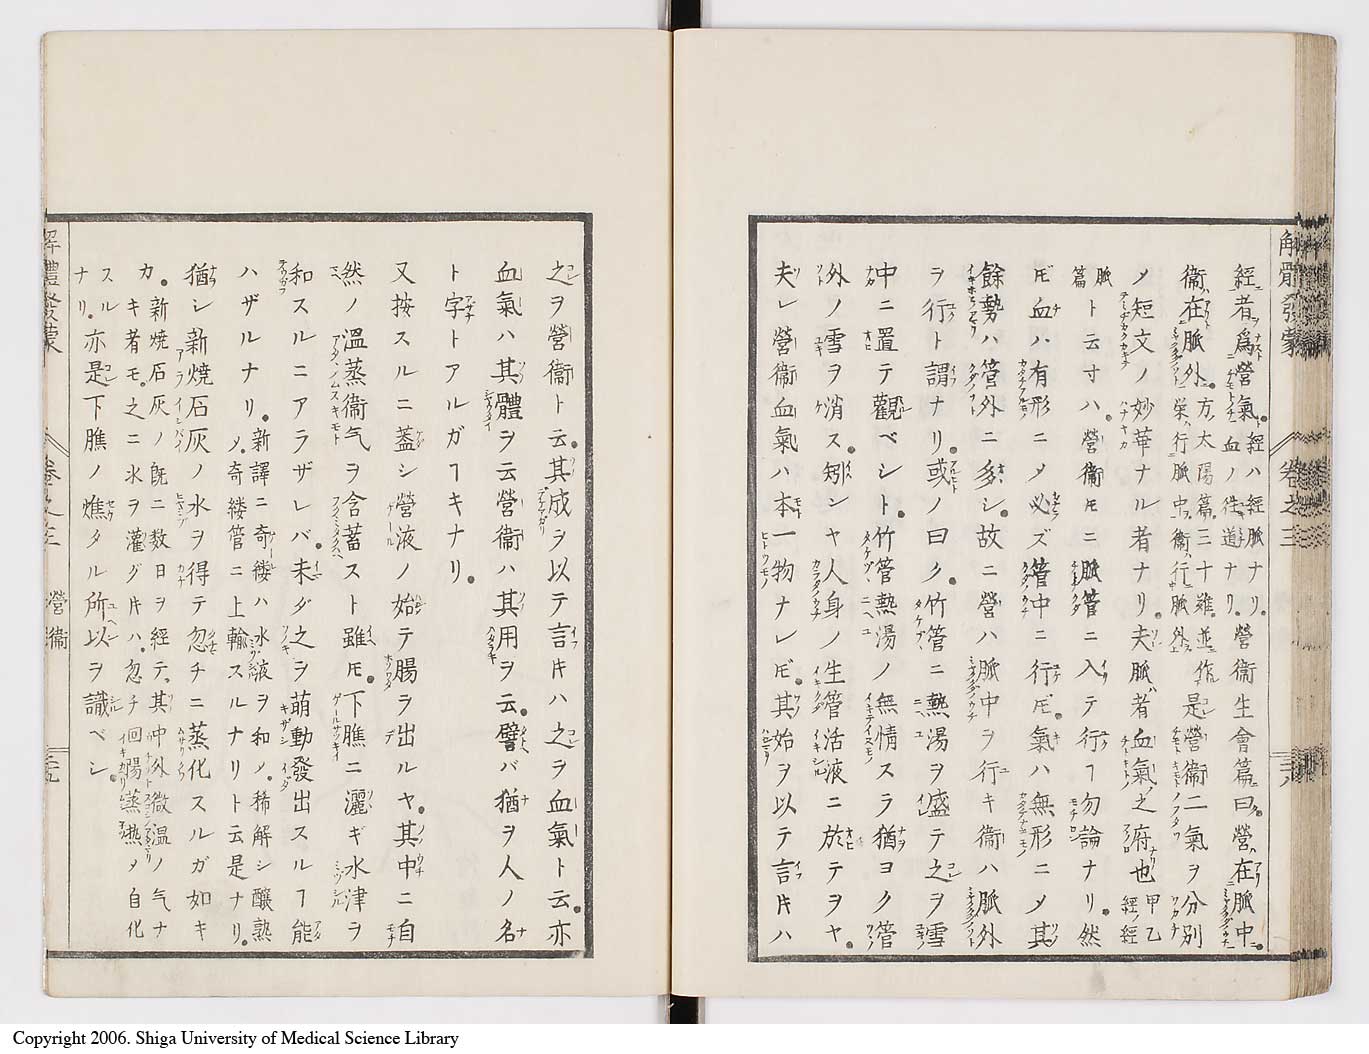 解體發蒙 卷之三 三十八
經者爲營氣。經ハ經脈ナリ。營衞生會篇ニ曰營ハ在脈中。
血ノ往道ナリ。
衞ハ在脈外。方。大陽篇。三十難。並作是營衞二氣ヲ分別
榮ハ行脈中。衞ハ行脈外。
ノ短文ノ妙華ナル者ナリ。夫脈ハ者血氣ノ之府也甲乙
經ノ經
脈
篇ト云寸ハ。營衞𪜈ニ脈管ニ入テ行ヿ勿論ナリ。然
𪜈血ハ有形ニ〆必ズ管中ニ行𪜈。氣ハ無形ニ〆其
餘勢ハ管外ニ多シ。故ニ營ハ脈中ヲ行キ衞ハ脈外
ヲ行ト謂ナリ。或ノ曰ク。竹管ニ熱湯ヲ盛テ之ヲ雪
中ニ置テ觀ベシト。竹管熱湯ノ無情スラ猶ヨク管
外ノ雪ヲ消ス。矧ンヤ人身ノ生管活液ニ於テヲヤ。
夫レ營衞血氣ハ本一物ナレ𪜈。其始ヲ以テ言𪜈ハ
之ヲ營衞ト云。其成ヲ以テ言𪜈ハ之ヲ血氣ト云。亦
血氣ハ其體ヲ云營衞ハ其用ヲ云。譬バ猶ヲ人ノ名
ト字トアルガヿキナリ。
又按スルニ蓋シ營液ノ始テ腸ヲ出ルヤ。其中ニ自
然ノ溫蒸衞气ヲ含蓄スト雖𪜈。下膲ニ灑ギ水津ヲ
和スルニアラザレバ。未ダ之ヲ萌動發出スルヿ能
ハザルナリ。新譯ニ奇縷ハ水液ヲ和ノ。稀解シ釀熟
〆。奇縷管ニ上輸スルナリト云是ナリ。
猶シ新燒石灰ノ水ヲ得テ忽チニ蒸化スルガ如キ
カ。新燒石灰ノ旣ニ数日ヲ經テ。其中外微溫ノ气ナ
カキ者モ。之ニ水ヲ灌グ𪜈ハ。忽チ回陽蒸熱〆自化
スル
ナリ。亦是下膲ノ燋タル所以ヲ識ベシ。
解體發蒙 卷之三 營衞 三十九
Copyright 2006. Shiga University of Medical Science Library